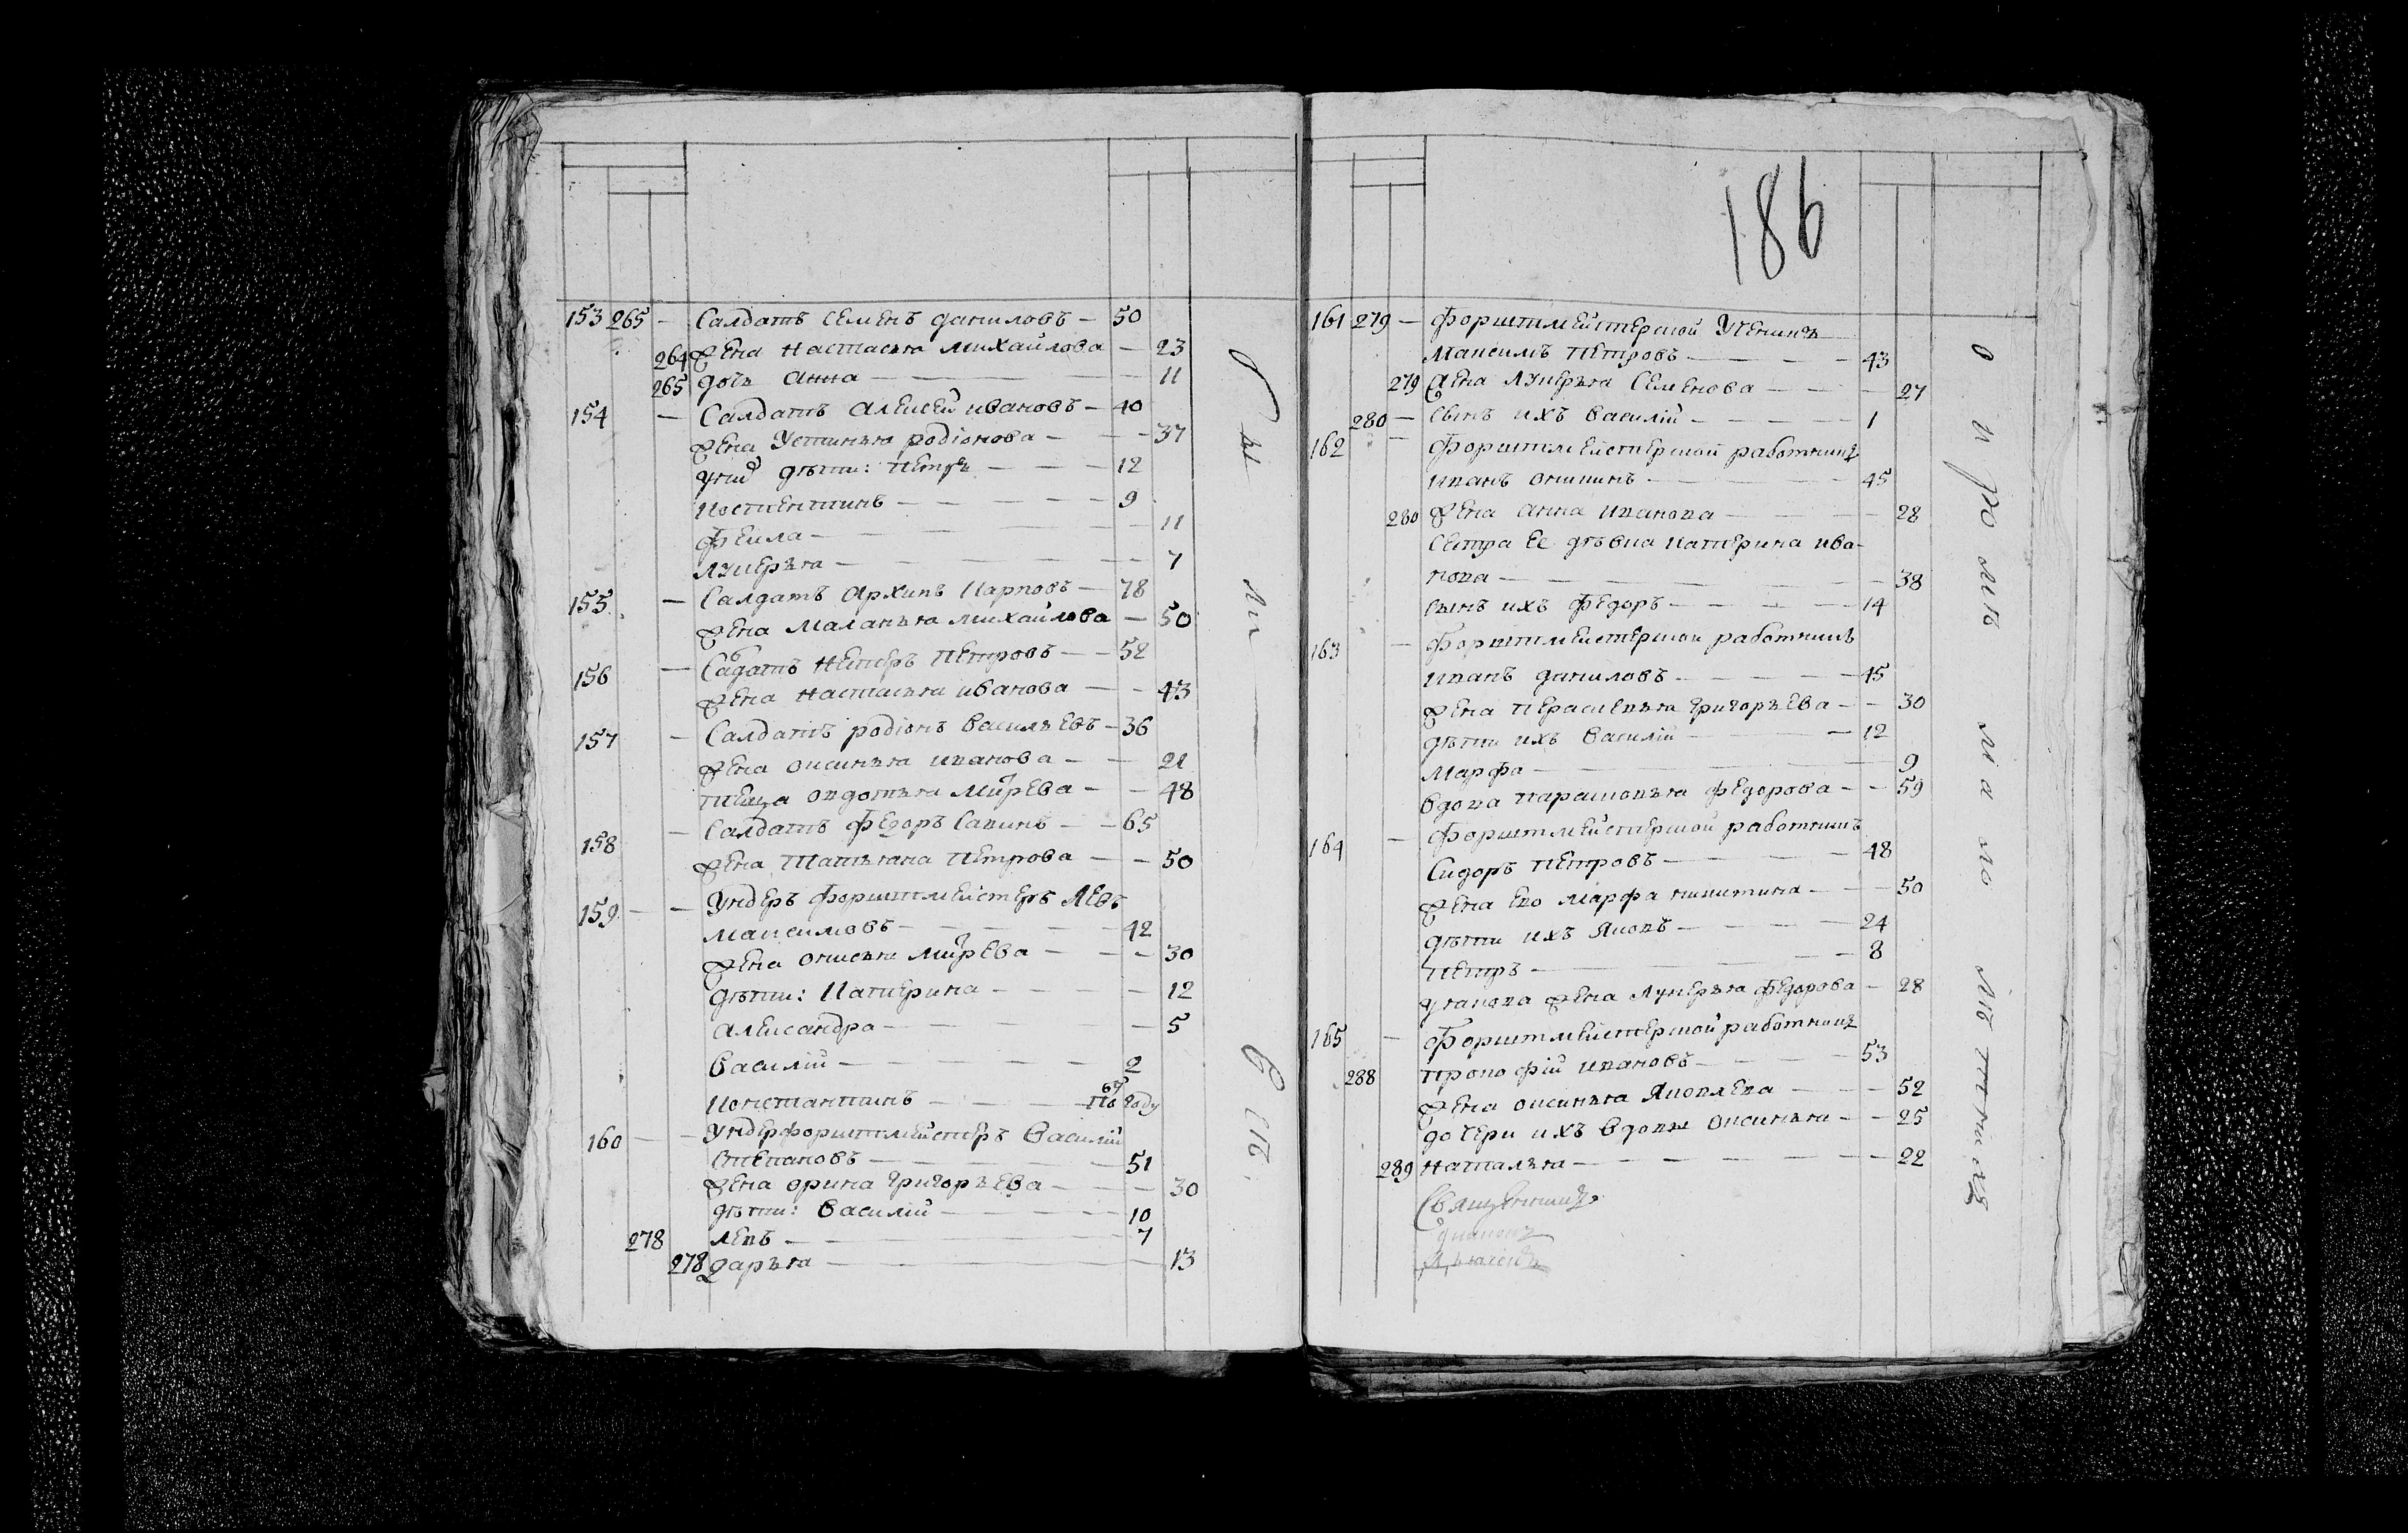 153 265 — Салдатъ Семенъ даниловъ — 50
264 жена Настасья михайлова — 23
265 дочь Анна — 11
154 — Салдатъ Алексей ивановъ — 40
жена Устинья родіонова — 37
у них дѣти: Петръ — 12
Костентинъ — 9
Фекла — 11
Лукерья — 7
155 — Салдатъ Архипъ Карповъ — 78
жена Маланья михайлова — 50
156 — Садатъ петровъ — 52
жена Настасья иванова — 43
157 — Салдатъ родіонъ Васильевъ — 36
жена оксинья иванова — 21
теща овдотья — 48
158 — Салдатъ федоръ Савинъ — 65
жена Татьяна Петрова — 50
159 — — Ундеръ форштмейстеръ Левъ
Максимовъ — 42
жена онисья — 30
дѣти: Катерина — 12
Александра — 5
Василій — 2
Константинъ — по году
160 — — Ундерфорштмейстеръ Василій
Степановъ — 51
жена орина григорьева — 30
дѣти: Василій — 10
278 левъ — 7
278 дарья — 13
Были — в сь
186
161 279 — Форштмейстерской Ученикъ
Максимъ Петровъ — 43
279 жена Лукерья Семенова — 27
280 — сынъ ихъ Василій — 1
162 — Форштмейстерской работникъ
иванъ — 45
280 жена анна иванова — 28
Сестра ее дѣвка катерина ива-
нова — 38
сынъ ихъ федоръ — 14
163 — Форштмейстерской работникъ
иванъ даниловъ — 45
жена григорьева — 30
дѣти ихъ Василій — 12
Марфа — 9
вдова парасковья федорова — 59
164 — Форштмейстерской работникъ
Сидоръ Петровъ — 48
жена ево марфа никитина — 50
дѣти ихъ Яковъ — 24
Петръ — 8
у жена Лукерья федорова — 28
165 — Форштмейстерской работникъ
288 прокофій ивановъ — 53
жена оксинья Яковлева — 52
дочери ихъ вдовы оксинья — 25
289 Наталья — 22
Священникъ
дьяконъ